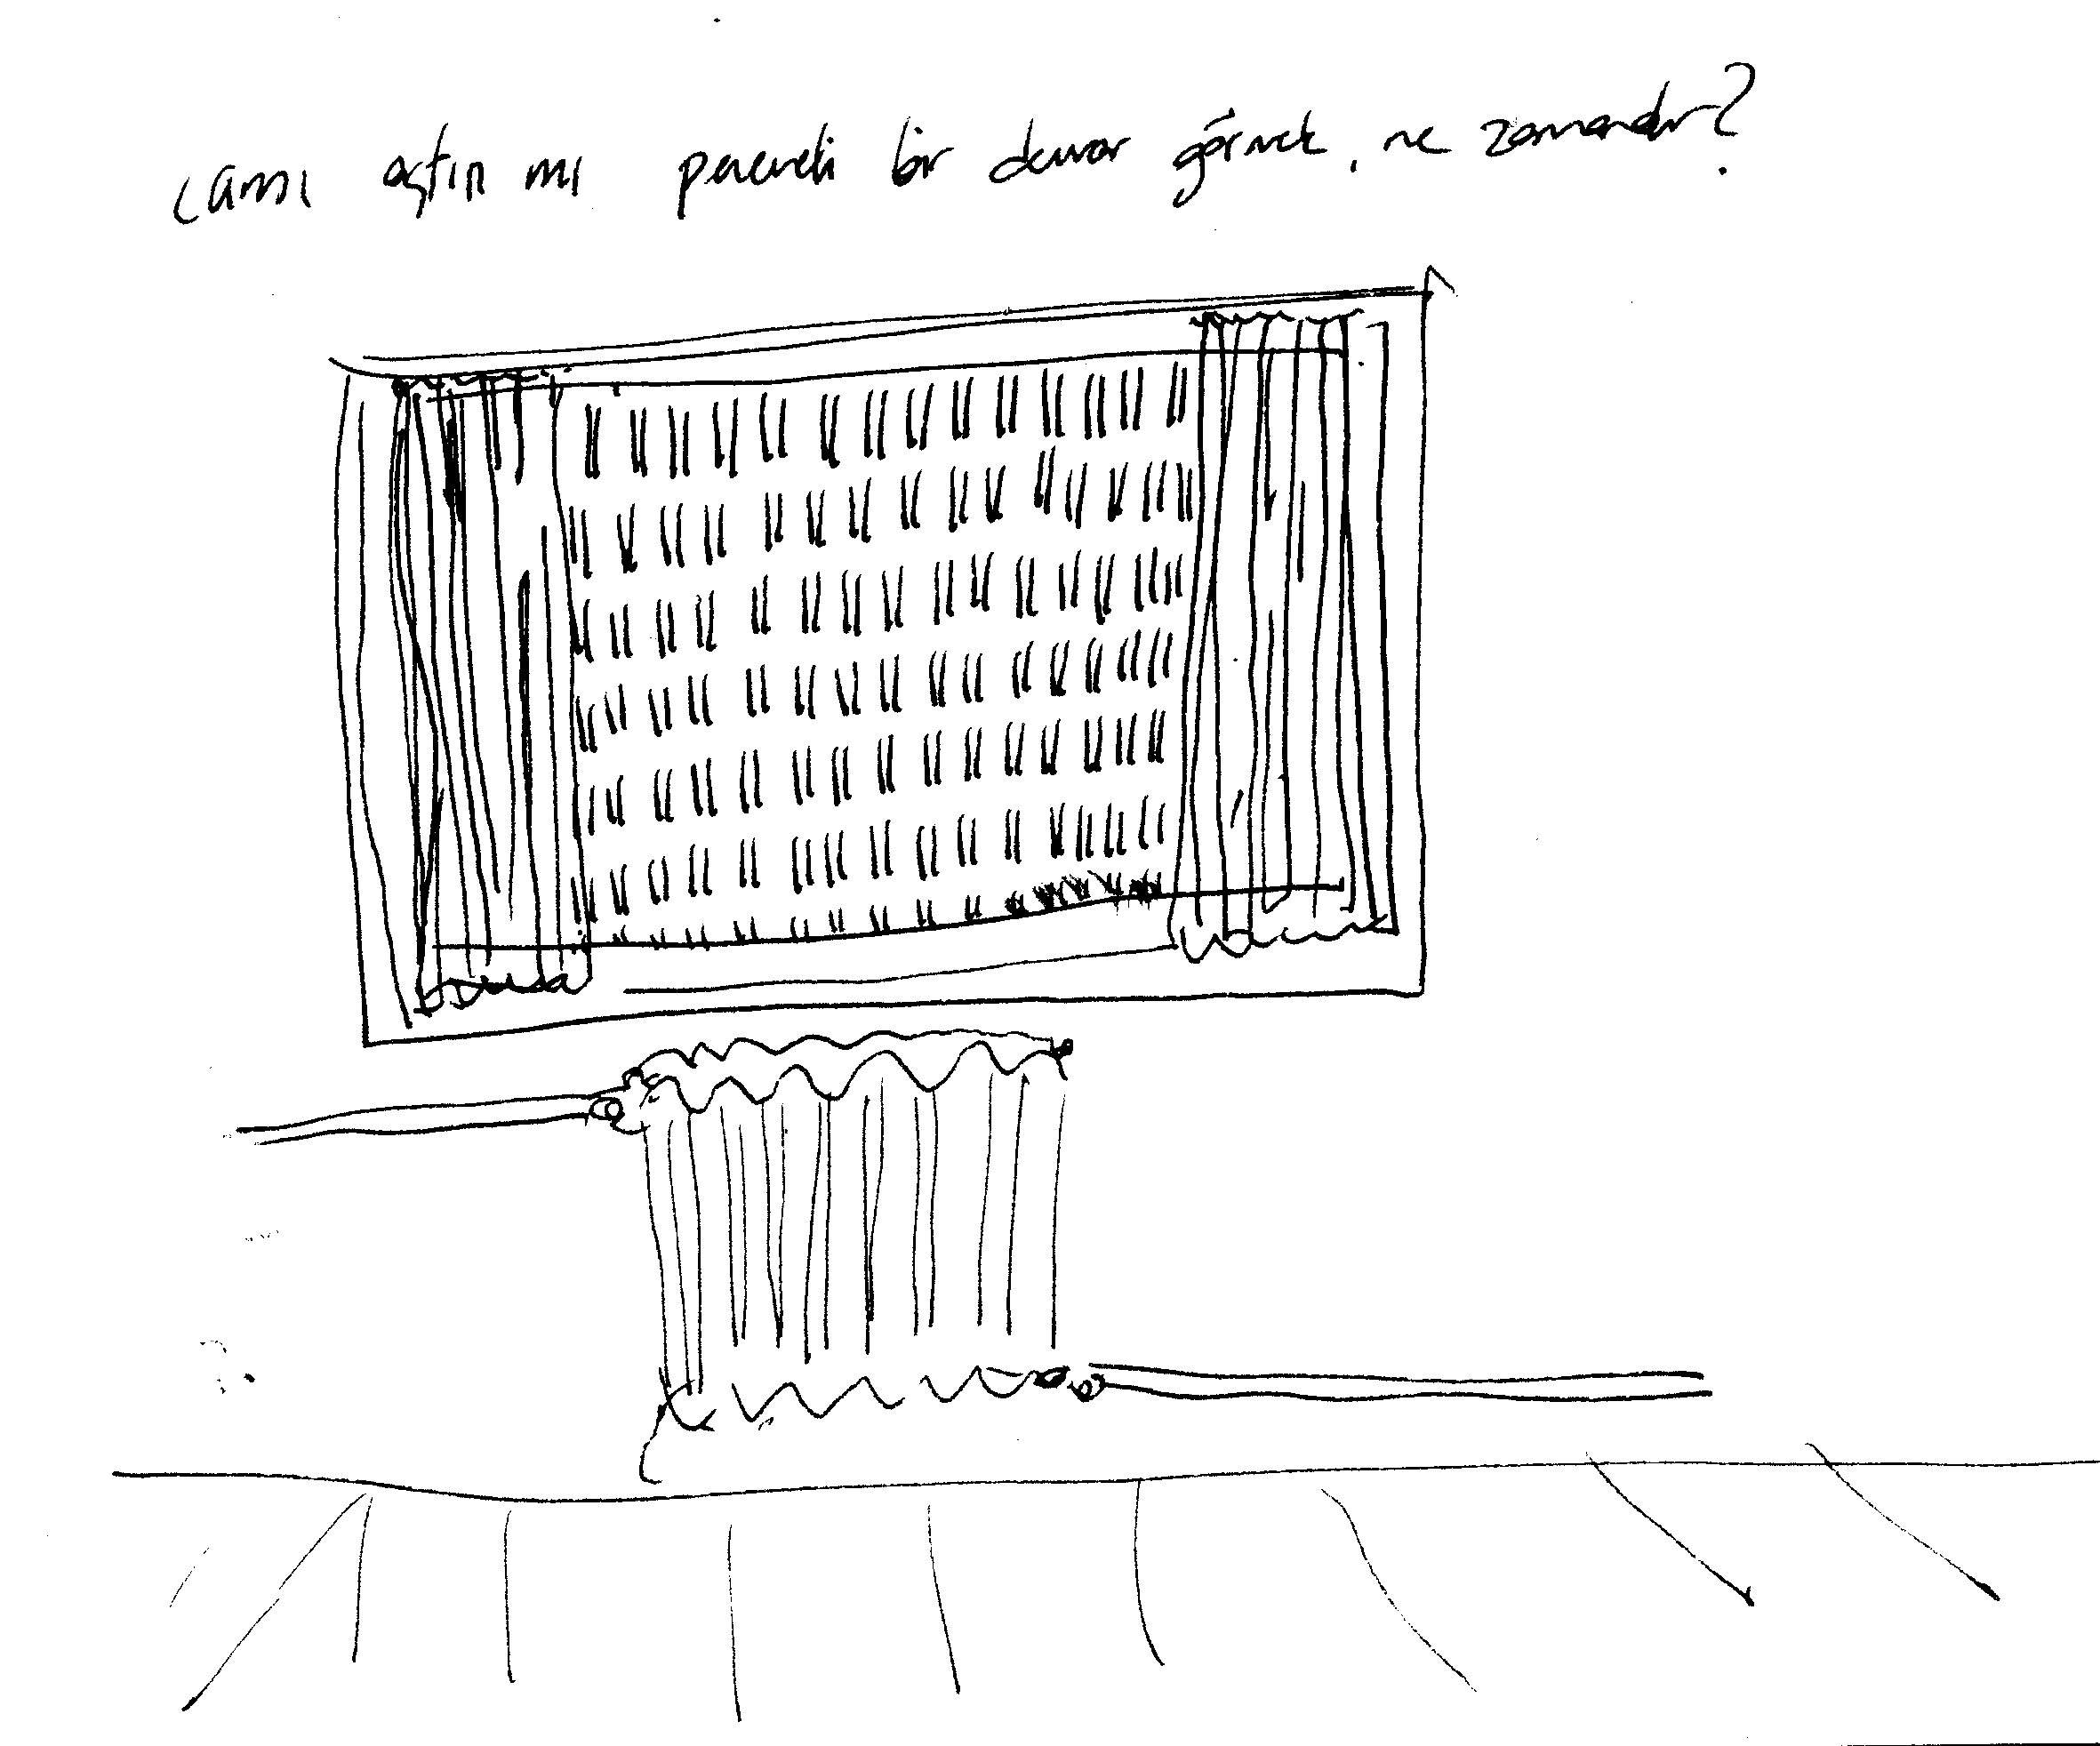 camı açtın mı pencereli bir duvar görmek, ne zamandır?